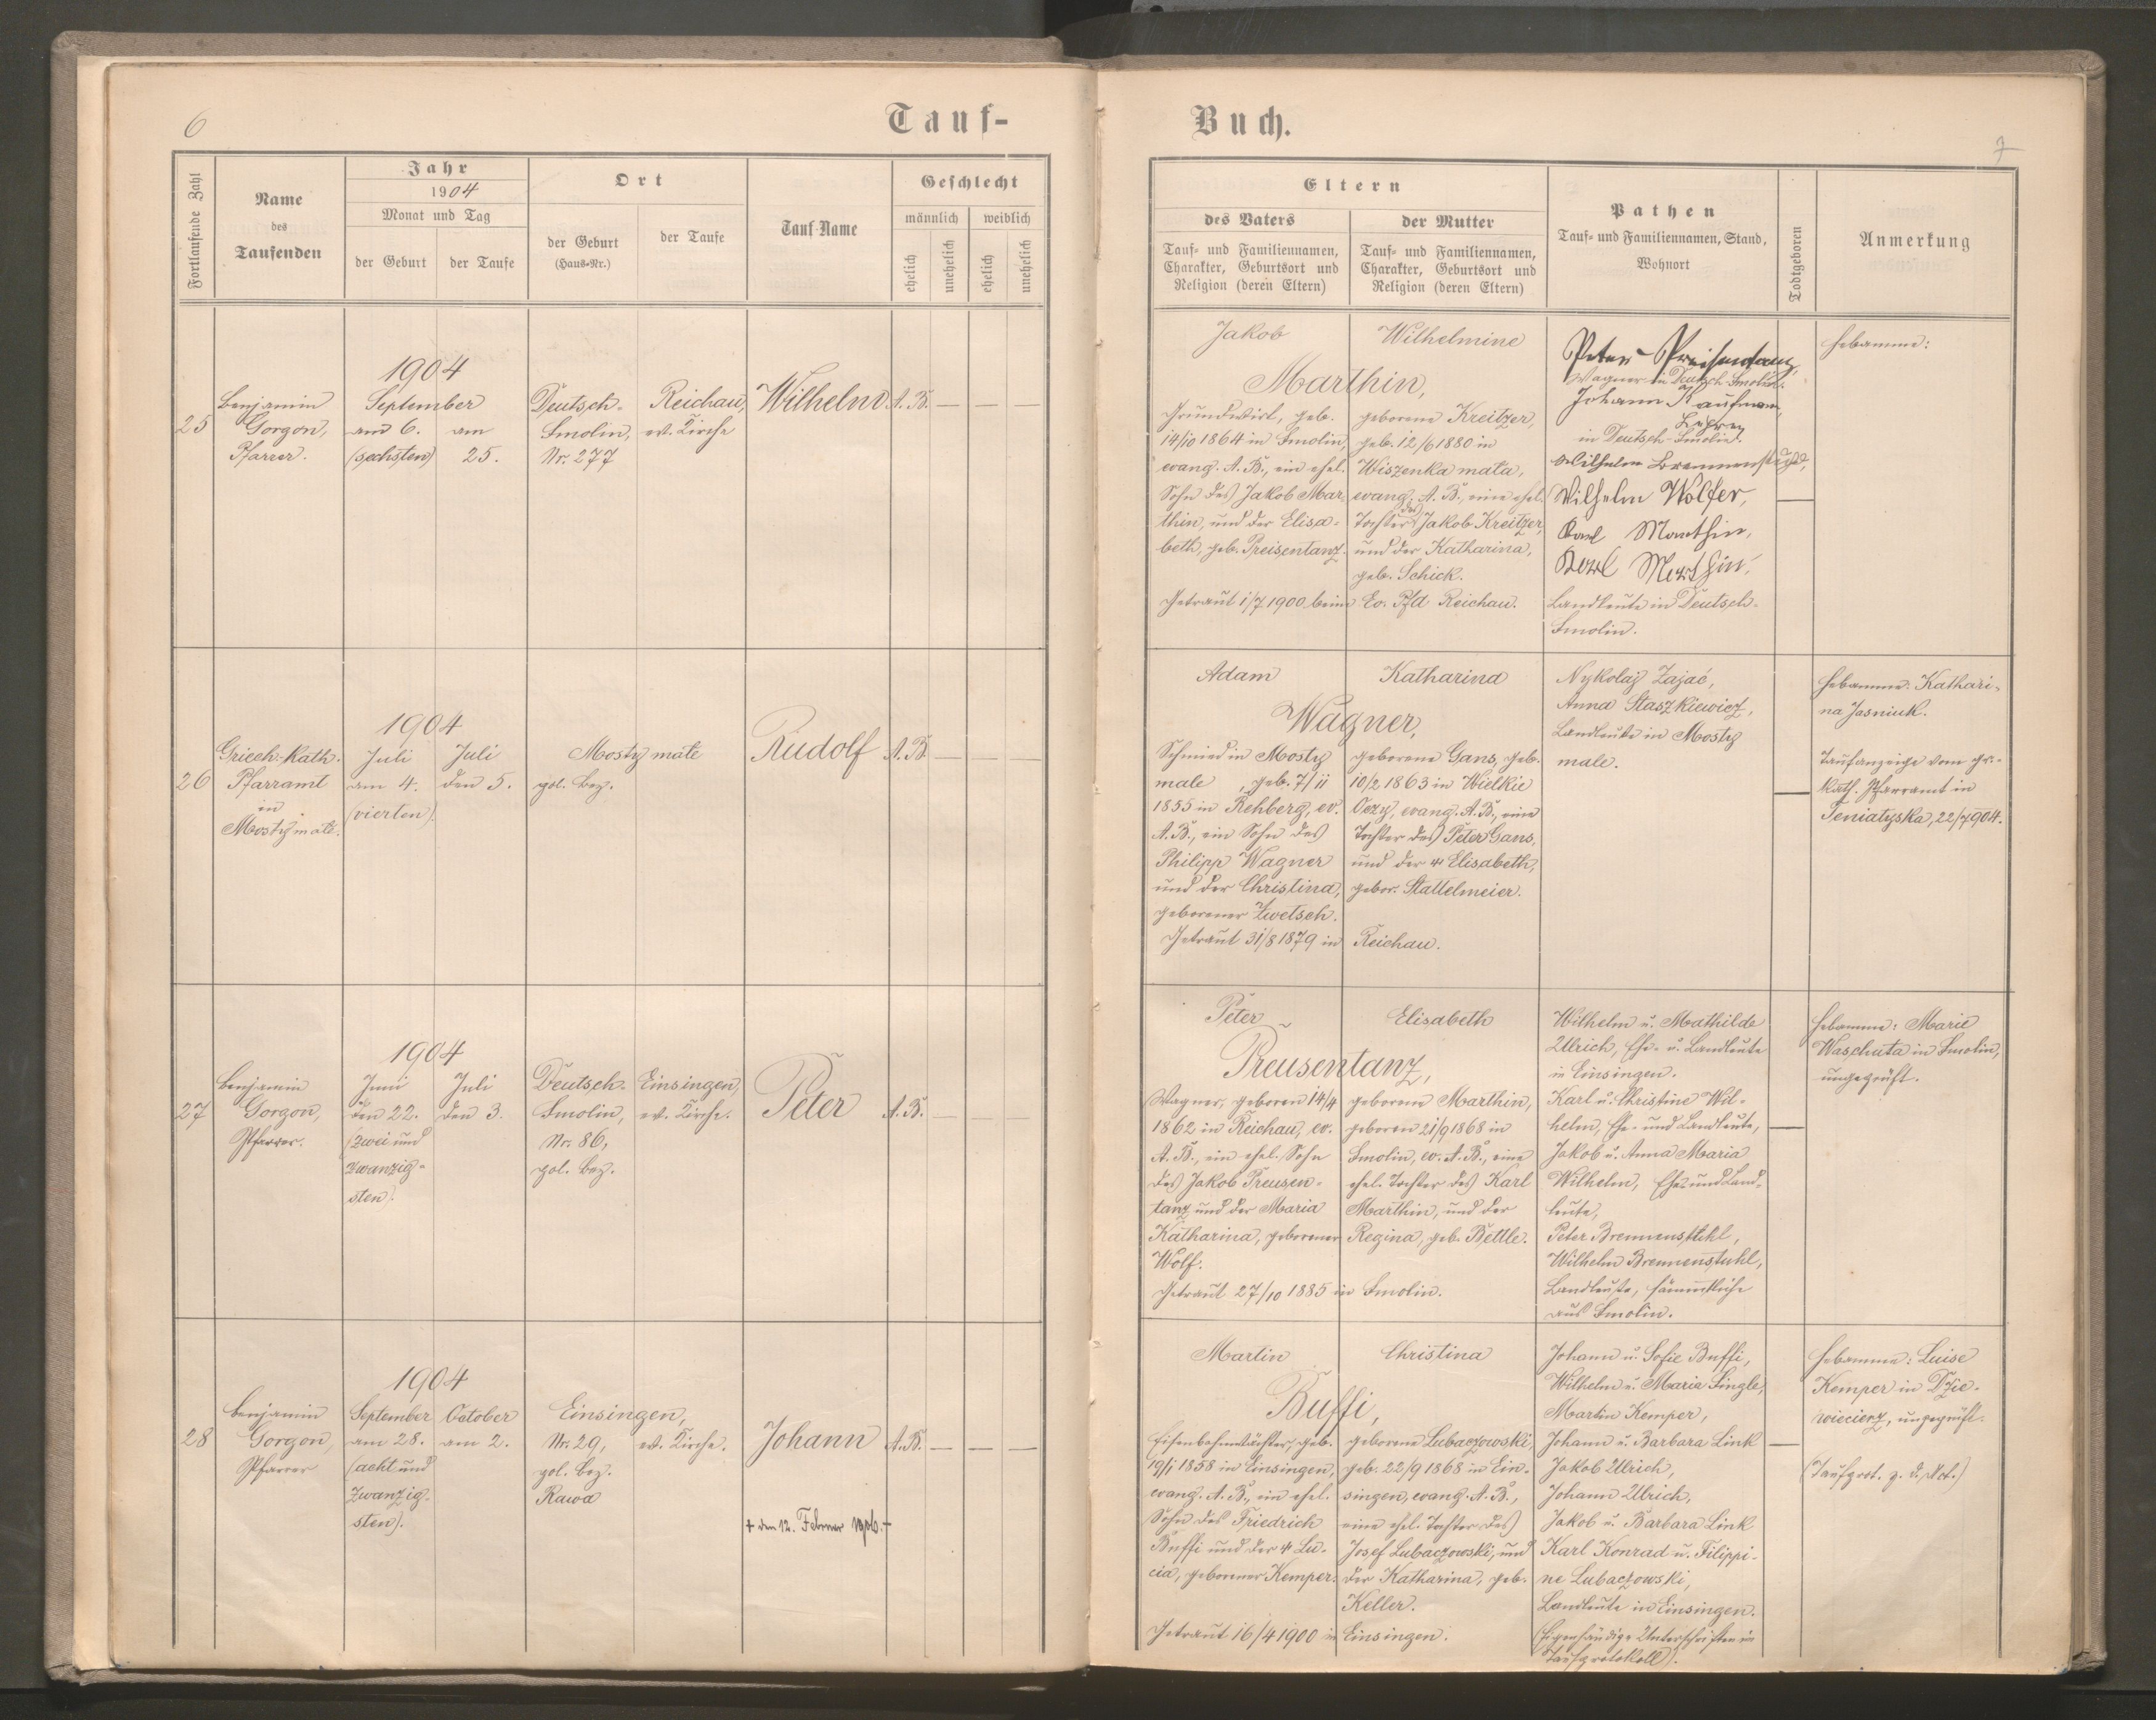 6
Tauf-
Fortlaufende Zahl
Name
des
Taufenden
Jahr
1904
Monat und Tag
der Geburt
der Taufe
Ort
der Geburt
(Haus-Nr.)
der Taufe
Tauf-Name
Geschlecht
männlich
weiblich
ehelich
unehelich
ehelich
unehelich
25
Benjamin
Gorgon,
Pfarrer.
1904
September
am 6.
(sechsten)
am
25.
Deutsch-
Smolin,
Nr. 277
Reichau,
ev. Kirche
Wilhelm
A. B. — — —
26
Griech.-Kath.
Pfarramt
in
Mosty małe.
1904
Juli
am 4.
(vierten).
Juli
den 5.
Mosty małe
pol. Bez.
Rudolf
A. B. — — —
27
Benjamin
Gorgon,
Pfarrer.
1904
Juni
den 22.
(zwei und
zwanzig-
sten).
Juli
den 3.
Deutsch-
Smolin,
Nr. 86,
pol. Bez.
Einsingen,
ev. Kirche.
Peter
A. B. — — —
28
Benjamin
Gorgon,
Pfarrer
1904
September
am 28.
(acht und
zwanzig-
sten).
October
am 2.
Einsingen,
Nr. 29,
pol. Bez.
Rawa
ev. Kirche.
Johann
A. B. — — —
+ den 12. Februar 1906. +
Buch.
7
Eltern
des Vaters
Tauf- und Familiennamen,
Charakter, Geburtsort und
Religion (deren Eltern)
der Mutter
Tauf- und Familiennamen,
Charakter, Geburtsort und
Religion (deren Eltern)
Pathen
Tauf- und Familiennamen, Stand,
Wohnort
Todtgeboren
Anmerkung
Jakob
Wilhelmine
Marthin,
Grundwirt, geb.
14/10 1864 in Smolin,
evang. A. B., ein ehel.
Sohn des Jakob Mar-
thin, und der Elisa-
beth, geb. Preisentanz.
geborene Kreitzer,
geb. 12/6 1880 in
Wiszenka mała,
evang. A. B., eine ehel.
Tochter des Jakob Kreitzer,
und der Katharina,
geb. Schick.
Getraut 1/7 1900 beim Ev. Pfd Reichau.
Peter Preisendanz,
Wagner in Deutsch-Smolin.
Johann Kaufmann,
Lehrer
in Deutsch-Smolin.
Wilhelm Brennenstuhl,
Wilhelm Wolfer,
Karl Marthin,
Karl Marthin,
Landleute in Deutsch-
Smolin.
—
Hebamme:
Adam
Katharina
Wagner,
Schmied in Mosty
małe, geb. 7/11
1855 in Rehberg, ev.
A. B., ein Sohn des
Philipp Wagner
und der Christina,
geborener Zwetsch.
geborene Gans, geb.
10/2 1863 in Wielkie
Oczy, evang. A. B., eine
Tochter des Peter Gans,
und der Elisabeth,
gebor. Stattelmeier.
Getraut 31/8 1879 in Reichau.
Nykolaj Zajać,
Anna Staszkiewicz,
Landleute in Mosty
małe.
—
Hebamme: Kathari-
na Jasniuk.
Taufanzeige vom gr.-
kath. Pfarramt in
Teniatyska, 22/7 904.
Peter
Elisabeth
Preusentanz,
Wagner, geboren 14/4
1862 in Reichau, ev.
A. B., ein ehel. Sohn
des Jakob Preusen-
tanz und der Maria
Katharina, geborener
Wolf.
geborene Marthin,
geboren 21/9 1868 in
Smolin, ev. A. B., eine
ehel. Tochter des Karl
Marthin, und der
Regina, geb. Bettle.
Getraut 27/10 1885 in Smolin.
Wilhelm u. Mathilde
Ulrich, Ehe- u. Landleute
in Einsingen.
Karl u. Christine Wil-
helm, Ehe- und Landleute,
Jakob u. Anna Maria
Wilhelm, Ehe- und Land-
leute,
Peter Brennenstuhl,
Wilhelm Brennenstuhl,
Landleute, sämmtliche
aus Smolin.
—
Hebamme: Marie
Waschuta in Smolin,
ungeprüft.
Martin
Christina
Buffi,
Eisenbahnwächter, geb.
19/1 1858 in Einsingen,
evang. A. B., ein ehel.
Sohn des Friedrich
Buffi und der Lu-
cia, geborener Kemper.
geborene Lubaczowski,
geb. 22/9 1868 in Ein-
singen, evang. A. B.,
eine ehel. Tochter des
Josef Lubaczowski, und
der Katharina, geb.
Keller.
Getraut 16/4 1900 in Einsingen.
Johann u. Sofie Buffi,
Wilhelm u. Maria Single,
Martin Kemper,
Johann u. Barbara Link
Jakob Ulrich,
Johann Ulrich,
Jakob u. Barbara Link
Karl Konrad u. Filippi-
ne Lubaczowski,
Landleute in Einsingen.
(Eigenhändige Unterschriften im
Taufprotokoll).
—
Hebamme: Luise
Kemper in Dzie-
wiecierz, ungeprüft.
(Taufprot. z. d. Act.)